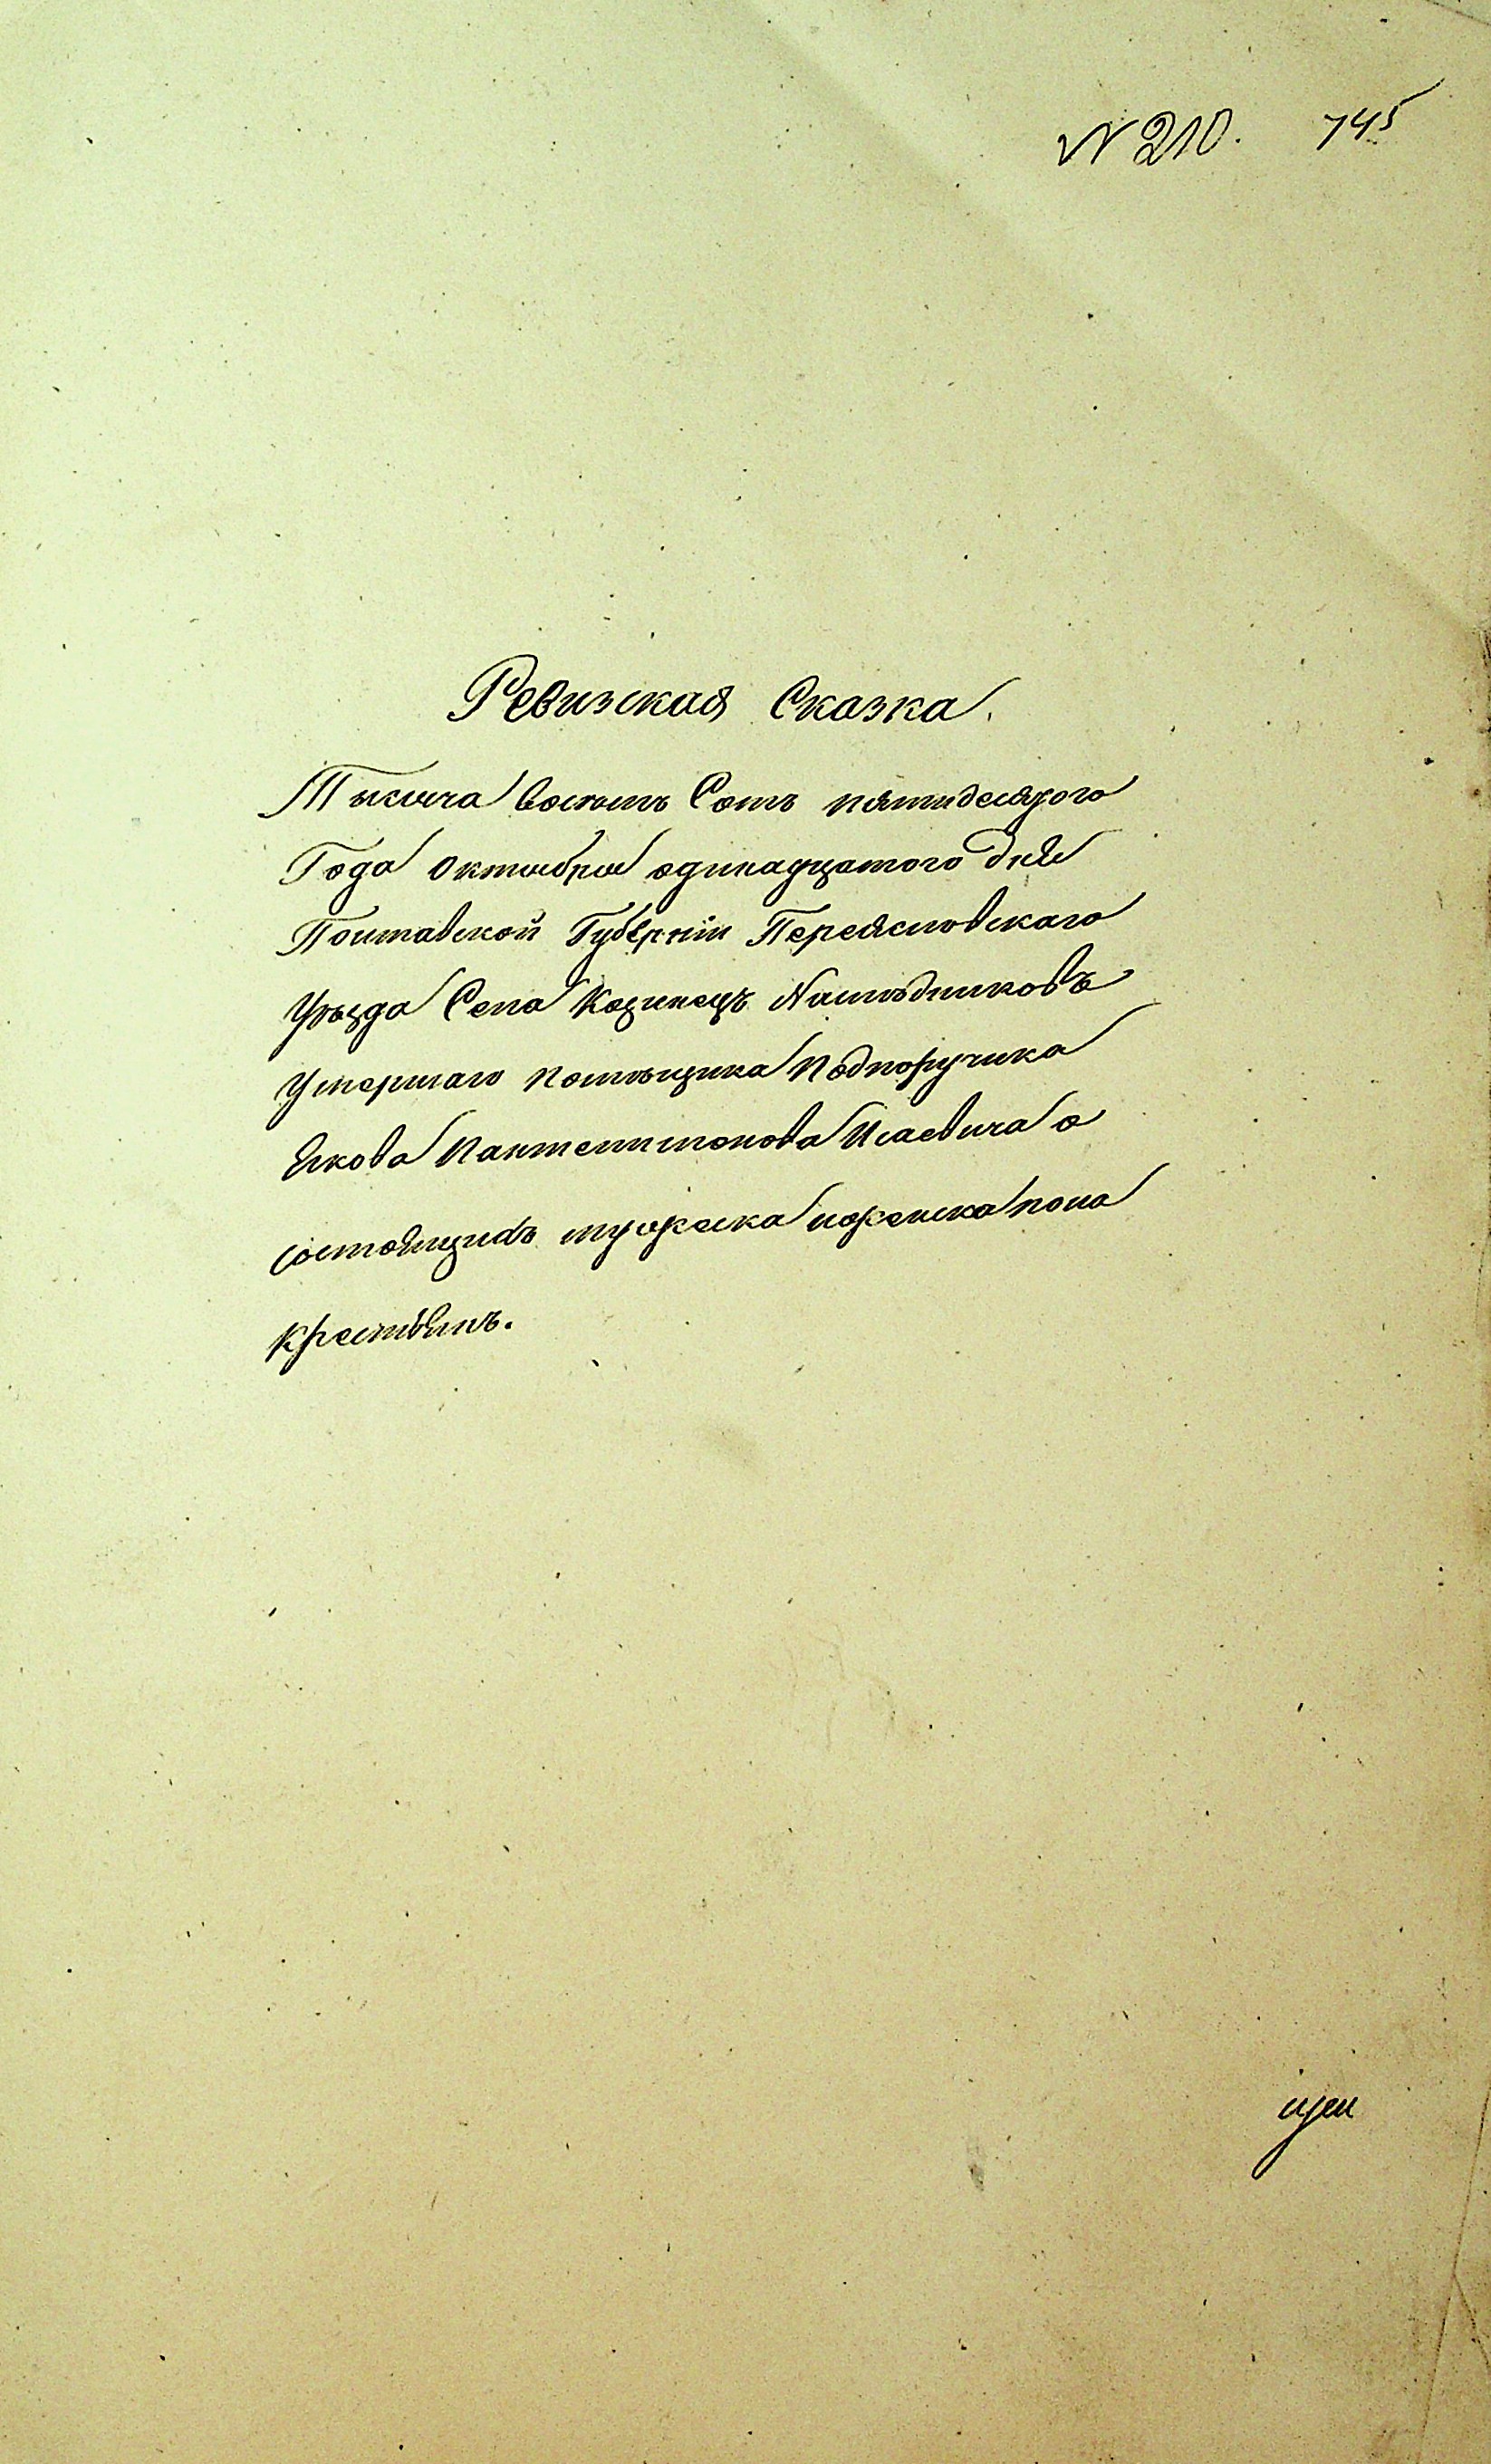 № 210. 745
Ревизская Сказка.
Тысяча восемь Сотъ пятидесятого
Года октября одинадцатого дня
Полтавской Губерніи Переясловскаго
уѣзда Села Козинецъ Наслѣдниковъ
умершаго помѣщика Подпоручика
Якова Пантелимонова Исаевича о
состоящихъ мужеска иженска пола
крестьянъ.